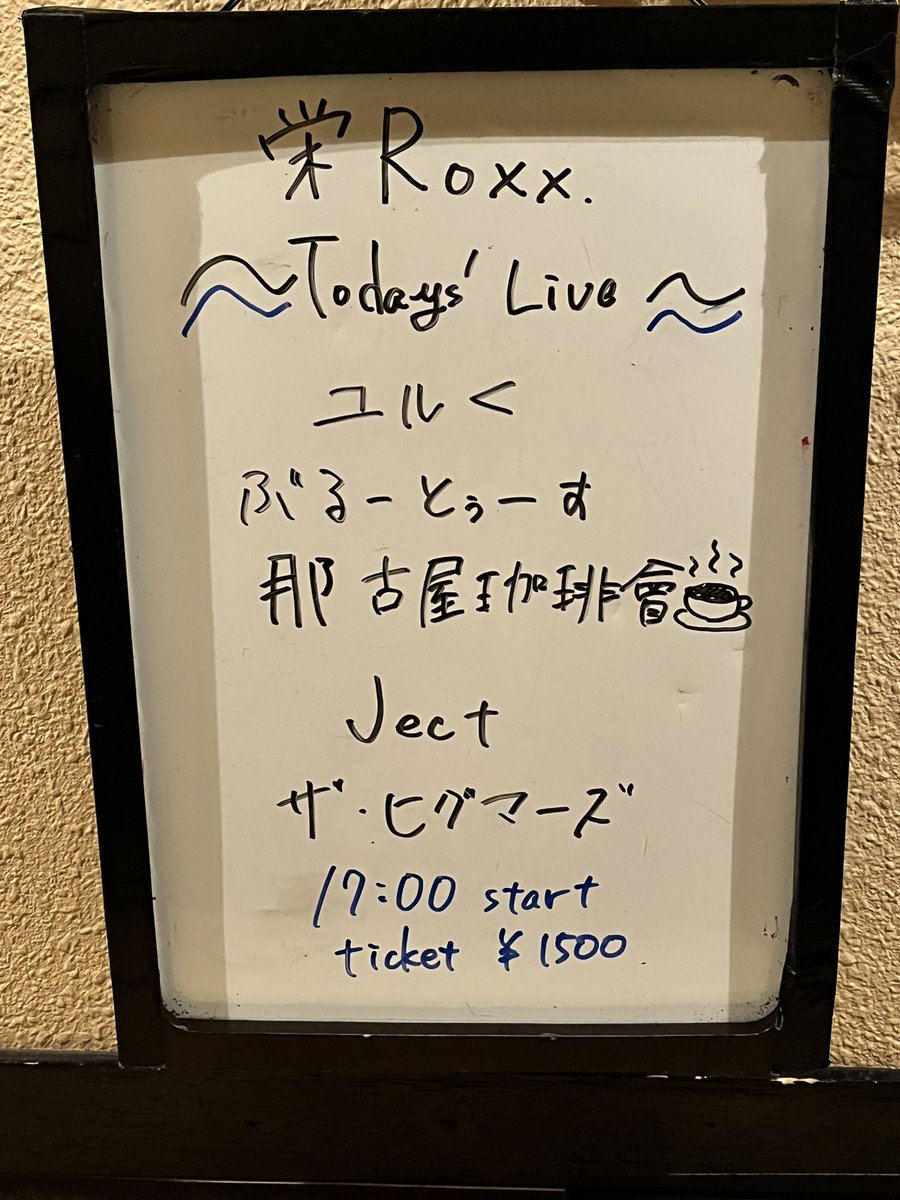 栄 Roxx.
〜Todays' Live〜
ユルく
ぶるーとぅーす
那古屋珈琲會
Ject
ザ・ヒグマーズ
17:00 start
ticket ¥1500